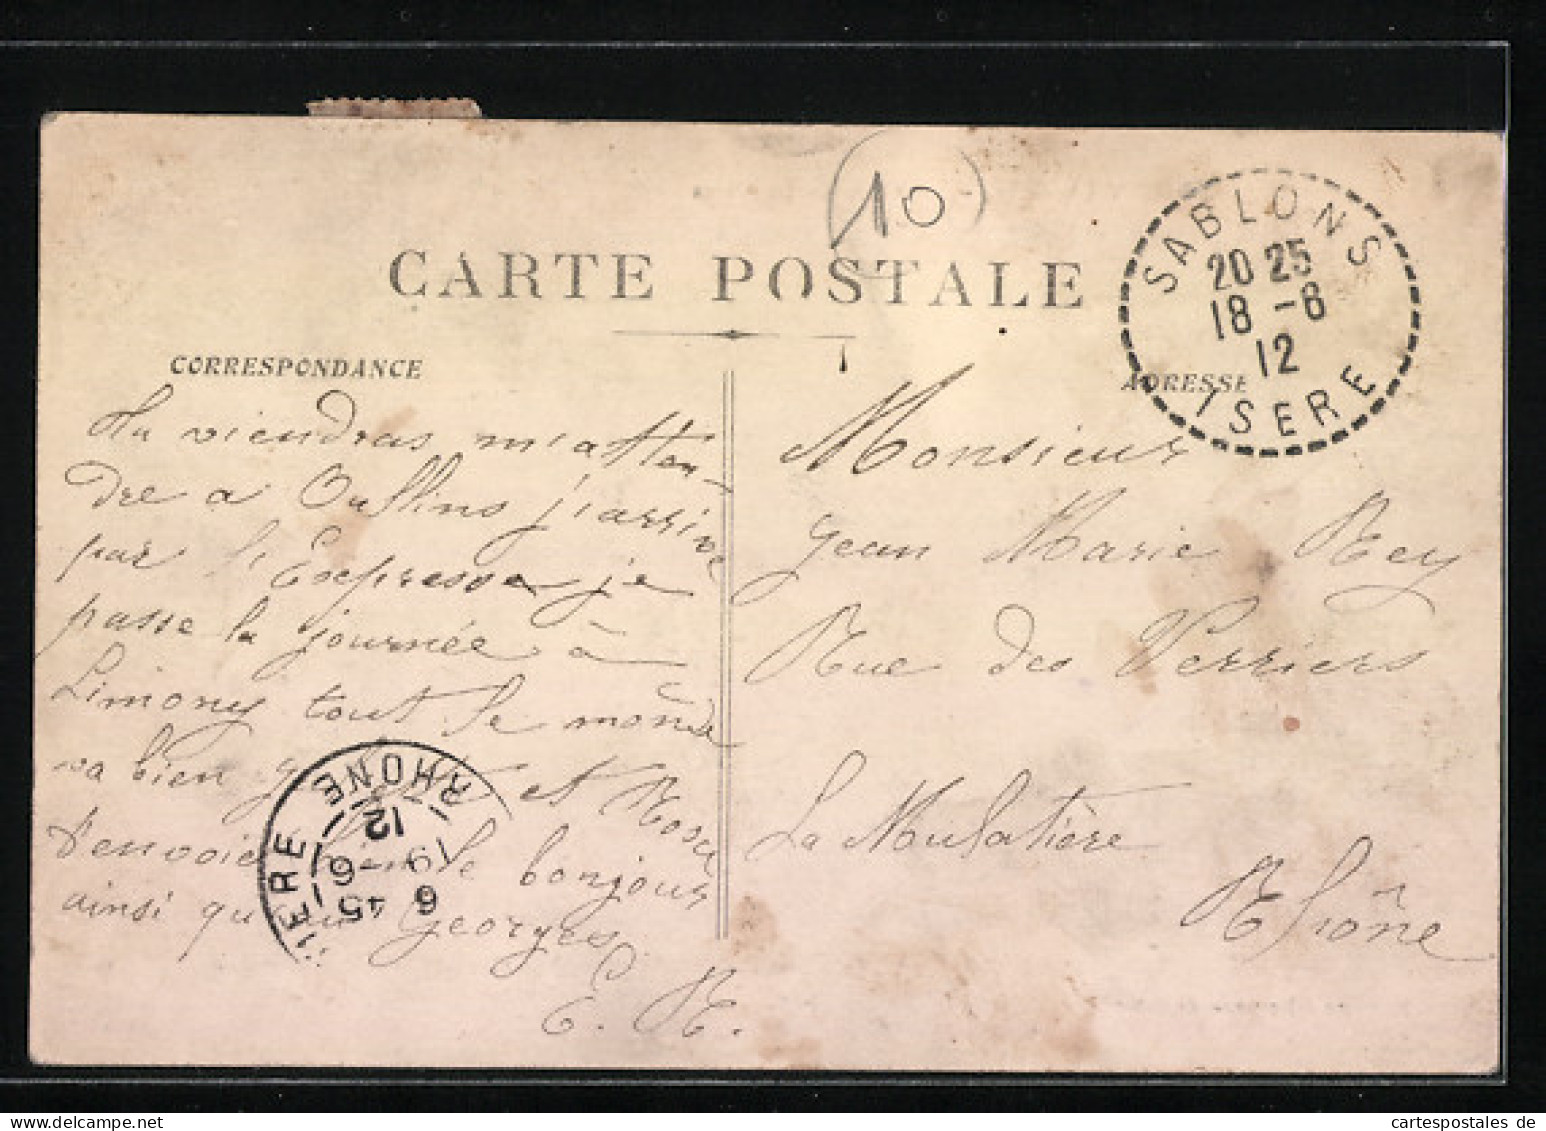 10
CARTE POSTALE
SABLONS
20 25
18 -8
12
ISERE
CORRESPONDANCE
Tu viendras m'atten-
dre a Oullins j'arrive
par l'Expresse je
passe la journée à
Limony tout le monde
va bien et Rosa
t'envoie le bonjour
ainsi Georges
E. R.
ADRESSE
Monsieur
Jean Marie Rey
Rue des Verriers
La Mulatière
Rhône
RHONE
12
19
6 45
IERE
cartespostales de